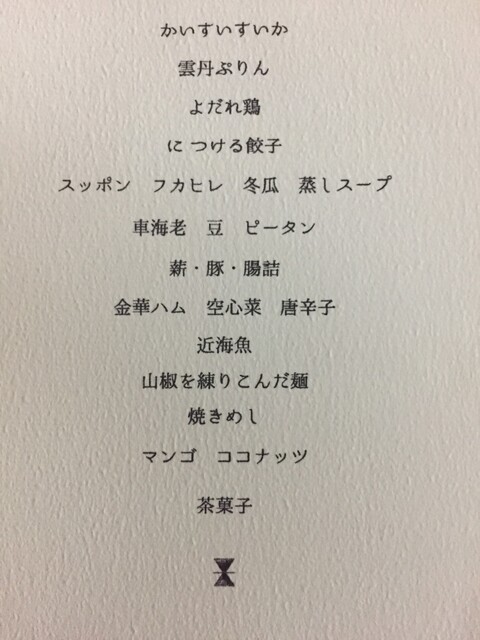 かいすいすいか
雲丹ぷりん
よだれ鶏
に つける餃子
スッポン　フカヒレ　冬瓜　蒸しスープ
車海老　豆　ピータン
薪・豚・腸詰
金華ハム　空心菜　唐辛子
近海魚
山椒を練りこんだ麺
焼きめし
マンゴ　ココナッツ
茶菓子